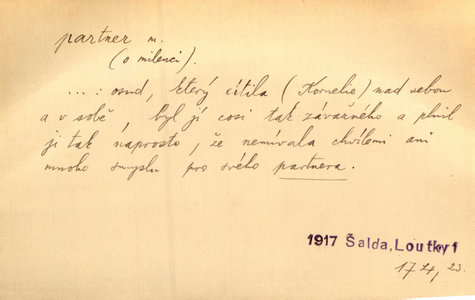 partner m.
(o milenci).
...: osud, který cítila (Kornelie) nad sebou
a v sobě, byl jí cosi tak závažného a plnil
ji tak naprosto, že nemívala chvílemi ani
mnoho smyslu pro svého partnera.
1917 Šalda, Loutky 1
174, 23.